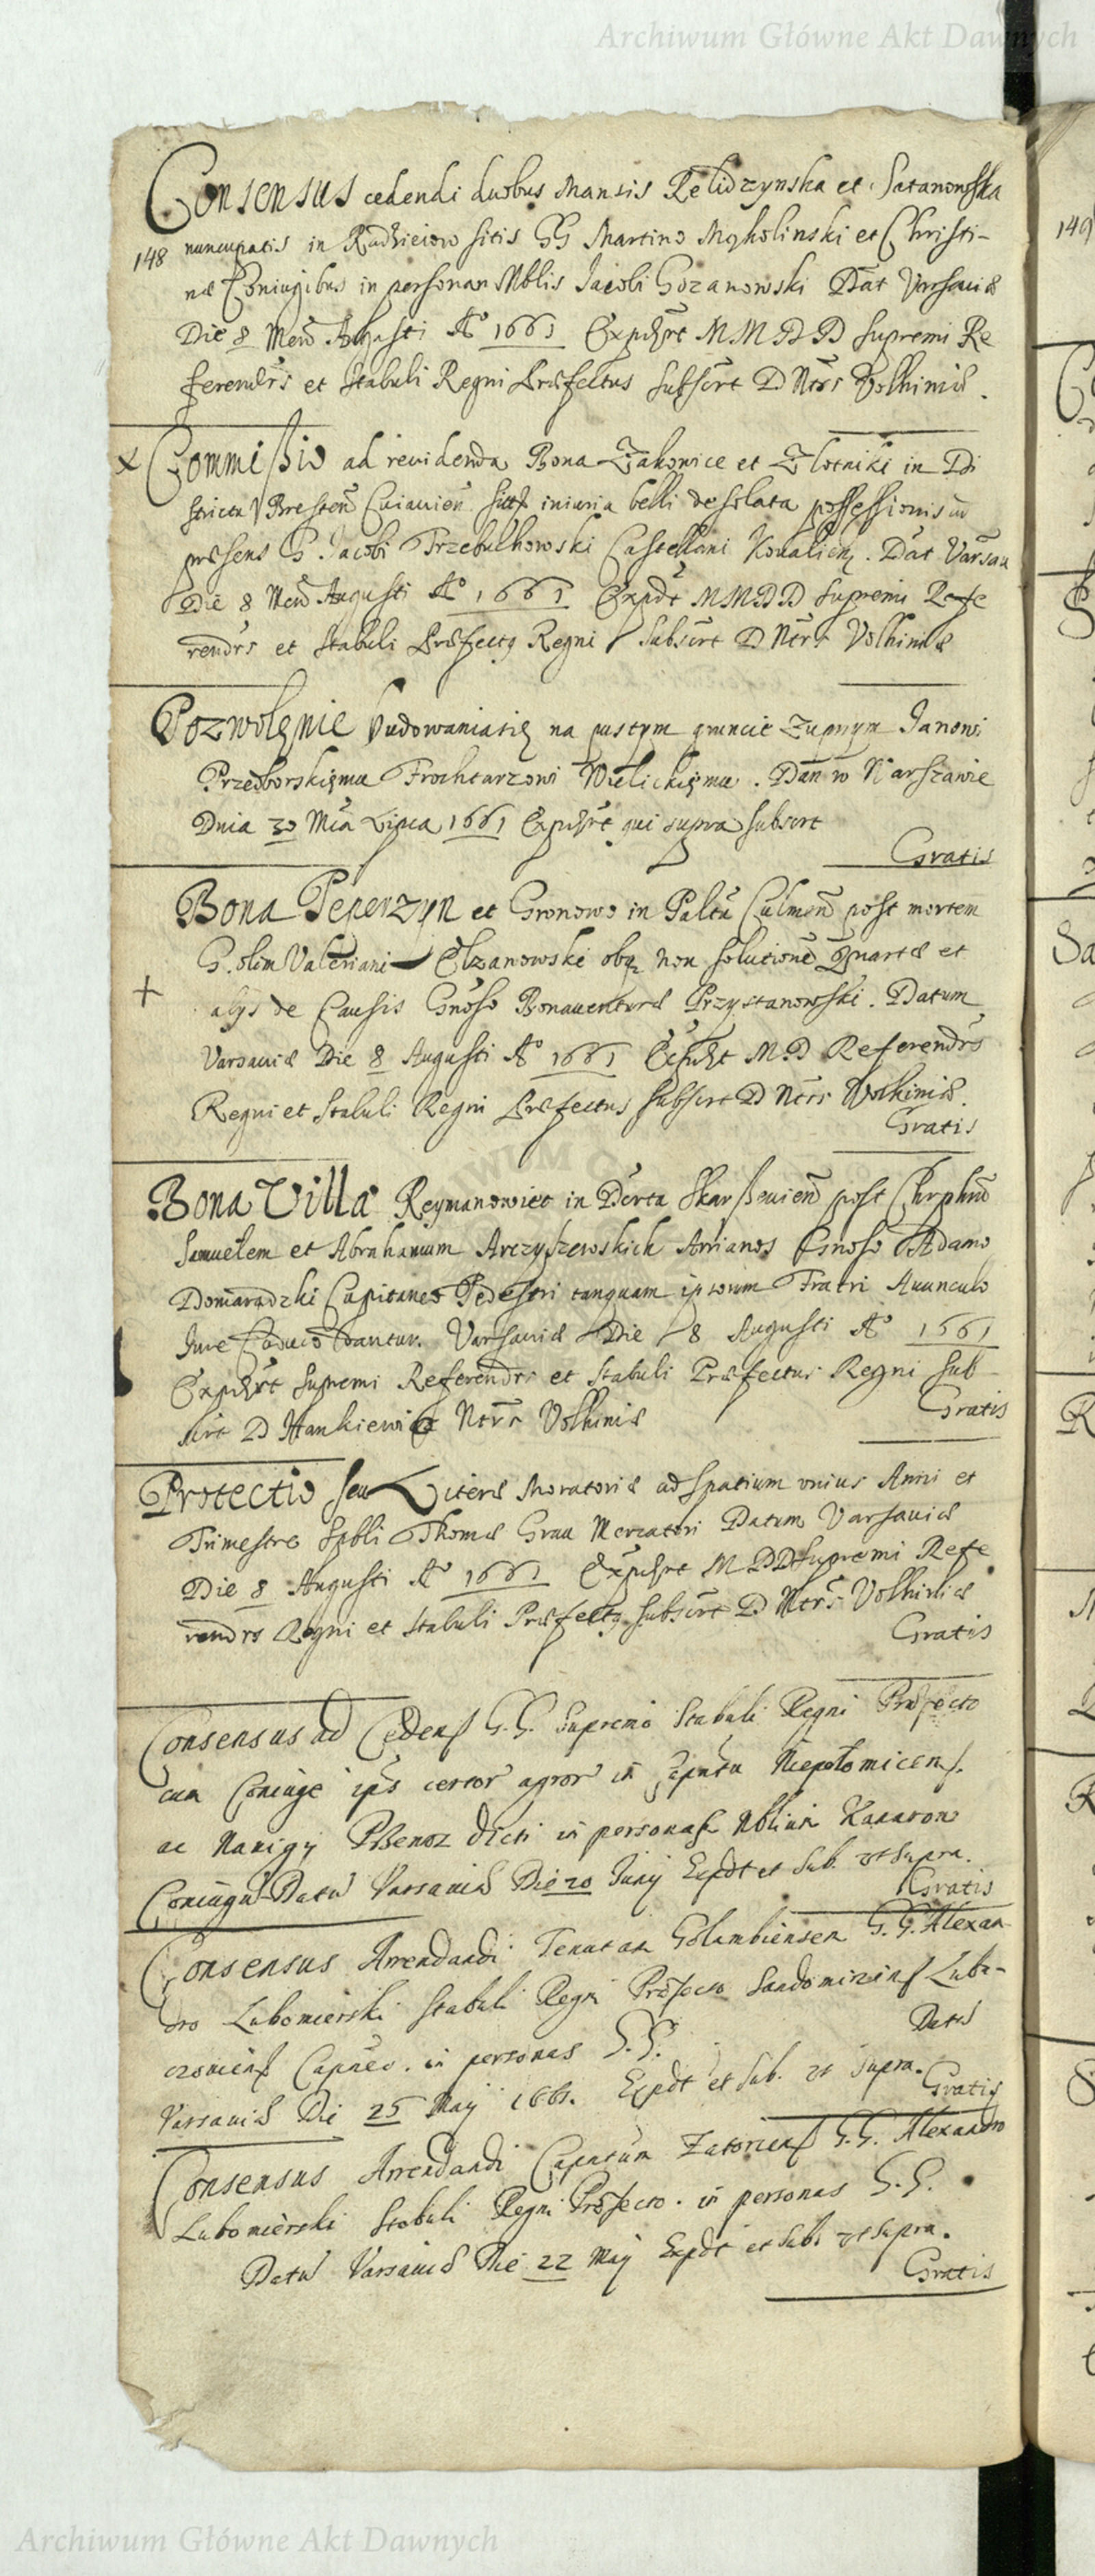 Archiwum Główne Akt Dawnych
Consensus cedendi duobus Mansis Relidzynska et Satanowska
148 nuncupatis in Radzieiow sitis GG Martino Mykolinski et Christi-
næ Coniugibus in personam Nblis Iacobi Gozanowski Dat Varsaviæ
Die 8 Men Augusti Aº 1661 Expdrt MM DD Supremi Re
ferendrs et Stabuli Regni Præfectus Subscrt D Ntrs Volhiniæ.
x Commissio ad revidenda Bona Zakowice et Zlotniki in Di
strictu Bresten Cuiavien iniuria belli desolata possessionis
præsens G. Iacobi Trzebuchowski Castellani Kovalien. Dat Varsav
Die 8 Men Augusti Aº 1661 Expdt MMDD Supremi Refe
rendrs et Stabuli Præfectq Regni Subscrt D Ntrs Volhiniæ
Pozwolęnie budowaniasię na pustym gruncie Zupnym Janowi
Przedborskięmu Frochtarzowi Wielickięmu. Dan w Warszawie
Dnia 30 Mca Lipca 1661 Expdrt qui supra Subscrt
Gratis
Bona Peperzyn et Gronowo in Paltu Culmen post mortem
G. olim Valeriani Elzanowski obq non solutione Quartæ et
+ alijs de Causis Gnoso Bonaventuræ Przystanowski. Datum
Varsaviæ Die 8 Augusti Aº 1661 Expdrt M.D Referendrs
Regni et Stabuli Regni Præfectus Subscrt D Ntrs Volhiniæ.
Gratis
Bona Villa Reymanowiec in Dsrta post Chrphm
Samuelem et Abrahamum Arczyszewskich Arrianos Gnoso Adamo
Domaradzki Capitaneo Pedestri tanquam ipsorum Fratri Avunculo
Iure Caduco dantur. Varsaviæ Die 8 Augusti Aº 1661
Expdrt Supremi Referendrs et Stabuli Præfectus Regni Sub
scrt D Hankiewicz Ntrs Volhiniæ
Gratis
Protectio seu Literæ Moratoriæ ad spatium unius Anni et
Trimestre Spbli Thomæ Grau Mercatori Datum Varsaviæ
Die 8 Augusti Aº 1661 Expdrt M DD Supremi Refe
rendrs Regni et Stabuli Præfectq Subscrt D Ntrs Volhiniæ
Gratis
Consensus ad Cedens G.G. Supremo Stabuli Regni Præfecto
cum Coniuge ips certor agror in Niepolomicens.
ac Nauigy dicti in personas Nblium
Coniugu Datu Varsaviæ Die 20 Iuny Expdt et Sub. ut Supra.
Gratis
Consensus Arrendandi Tenutam Golembiensem G.G. Alexan
dro Lubomierski Stabuli Regni Præfecto Sandomirien
Capneo. in personas G.G. Datu
Varsaviæ Die 25 May 1661. Expdt et Sub. ut Supra.
Gratis
Consensus Arrendandi Capntum Zatoriens G.G. Alexandro
Lubomierski Stabuli Regni Præfecto. in personas G.G.
Datu Varsaviæ Die 22 May Expdt et Sub ut Supra.
Gratis
149
Archiwum Główne Akt Dawnych